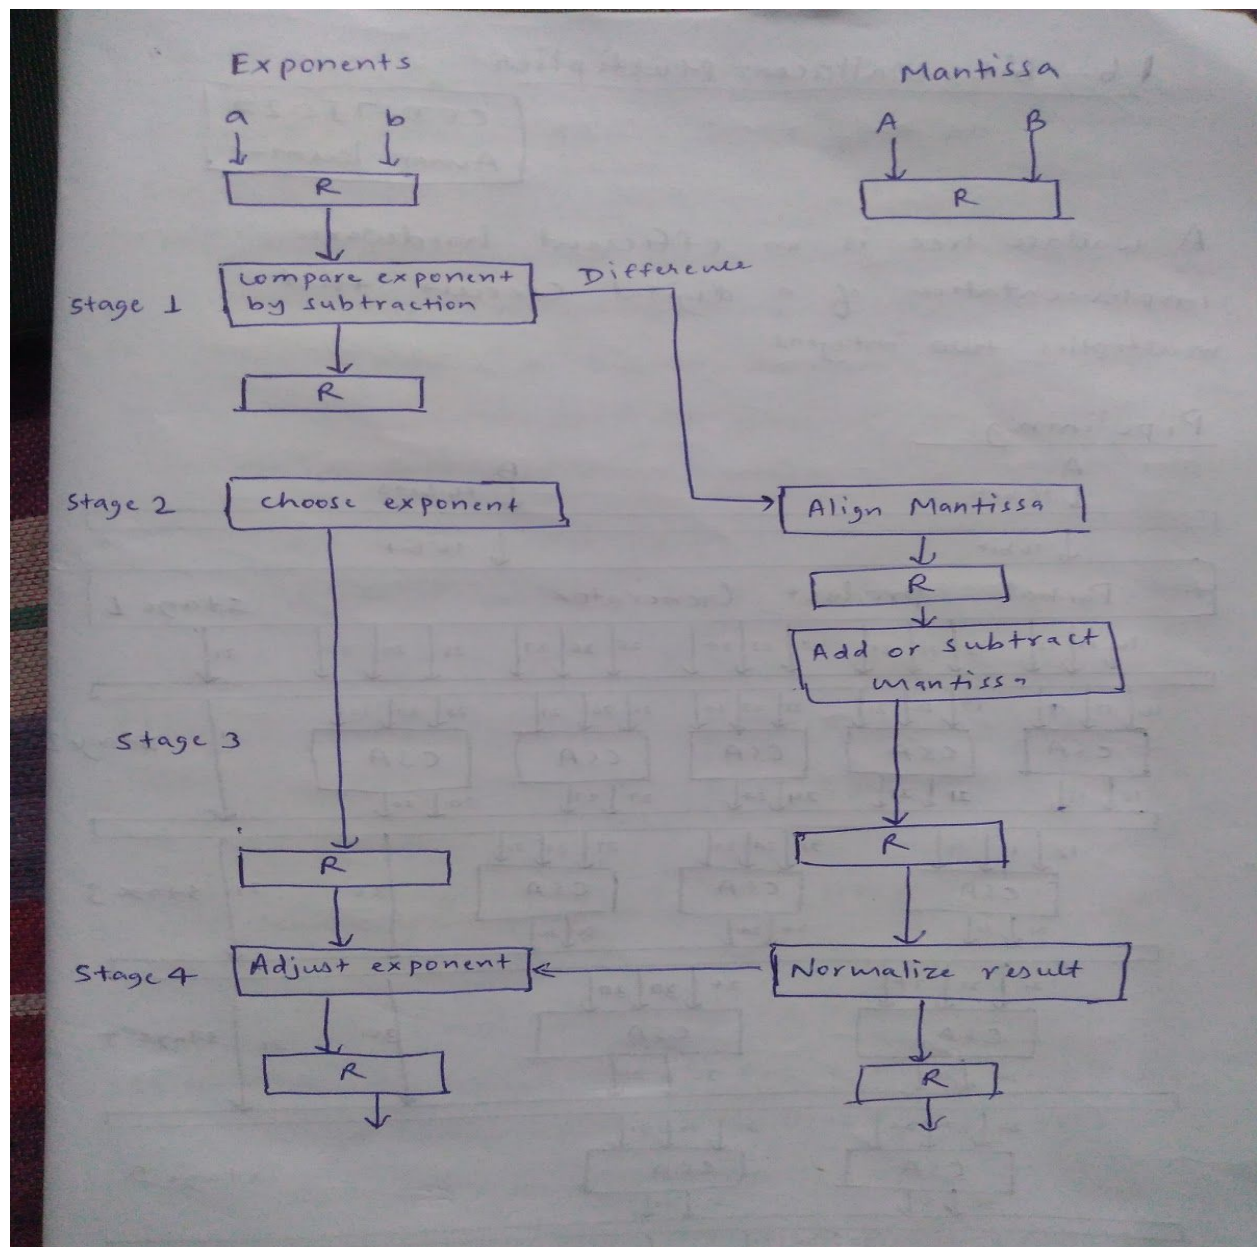 Exponents
Mantissa
a
b
A
B
R
R
Stage 1
Compare exponent
by subtraction
Difference
R
Stage 2
Choose exponent
Align Mantissa
R
Add or subtract
Stage 3
R
R
Stage 4
Adjust exponent
Normalize result
R
R